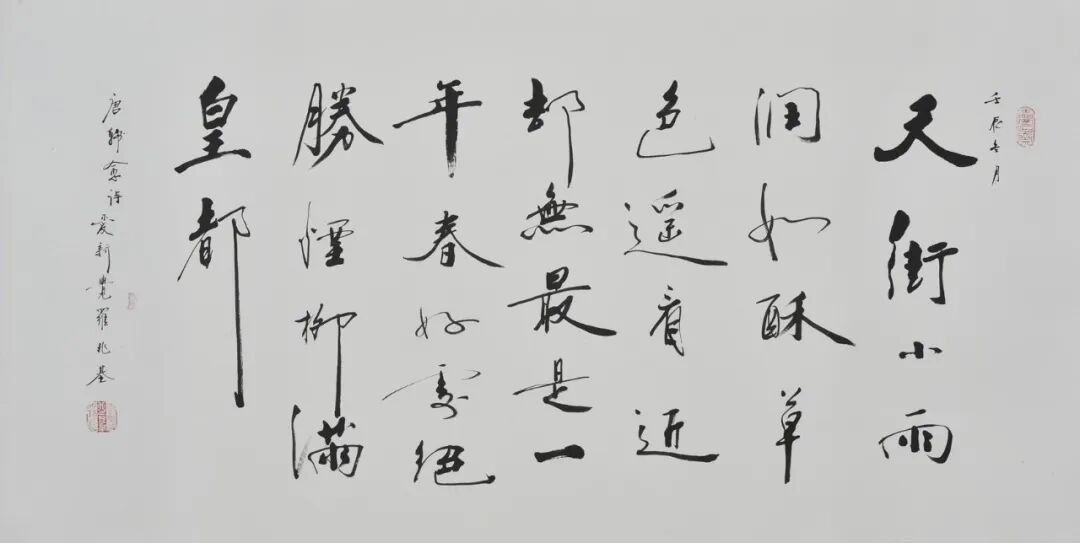 壬辰冬月
天街小雨
润如酥草
色遥看近
却無最是一
年春好處絕
勝煙柳滿
皇都
唐韓愈詩愛新覺羅兆基